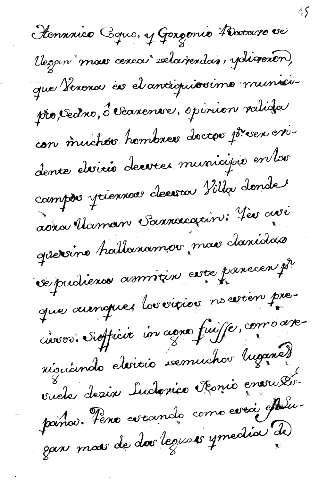 15
Henrrico Coquo, y Gorgonio
llegan mas cerca de la verdad, y dixeron,
que Urorra es el antiquissimo munici-
pio, ó Vcarense, opinion valida
con muchos hombres doctos pr ser evi-
dente el sitio de este municipio en los
campos y tierras de esta Villa donde
aora llaman Y es asi
que si no hallaramos mas claridad
se pudiera admitir este parecer pr
que aunque los sitios no esten pre-
cissos. Sufficit in agro fuisse, como ave-
riguando el sitio de muchos lugares
suele dezir Ludovico Nonio en su Es-
paña. Pero estando como está este lu-
gar mas de dos leguas y media de